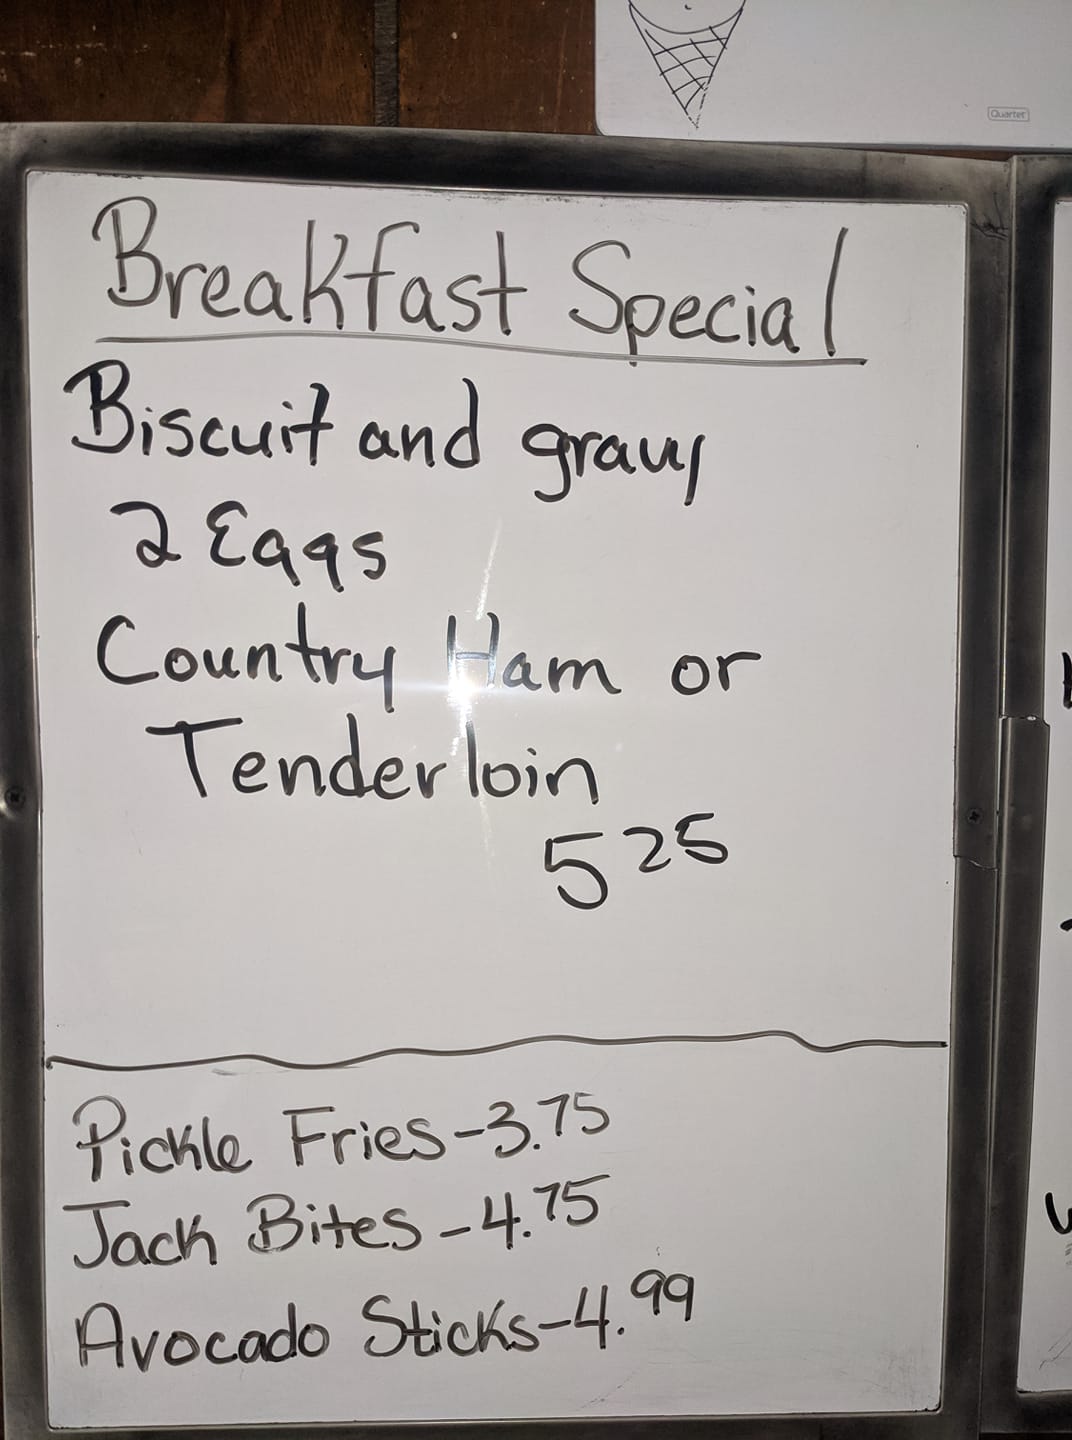 Quartet
Breakfast Special
Biscuit and gravy
2 Eggs
Country Ham or
Tenderloin
5 25
Pickle Fries-3.75
Jack Bites-4.75
Avocado Sticks-4.99